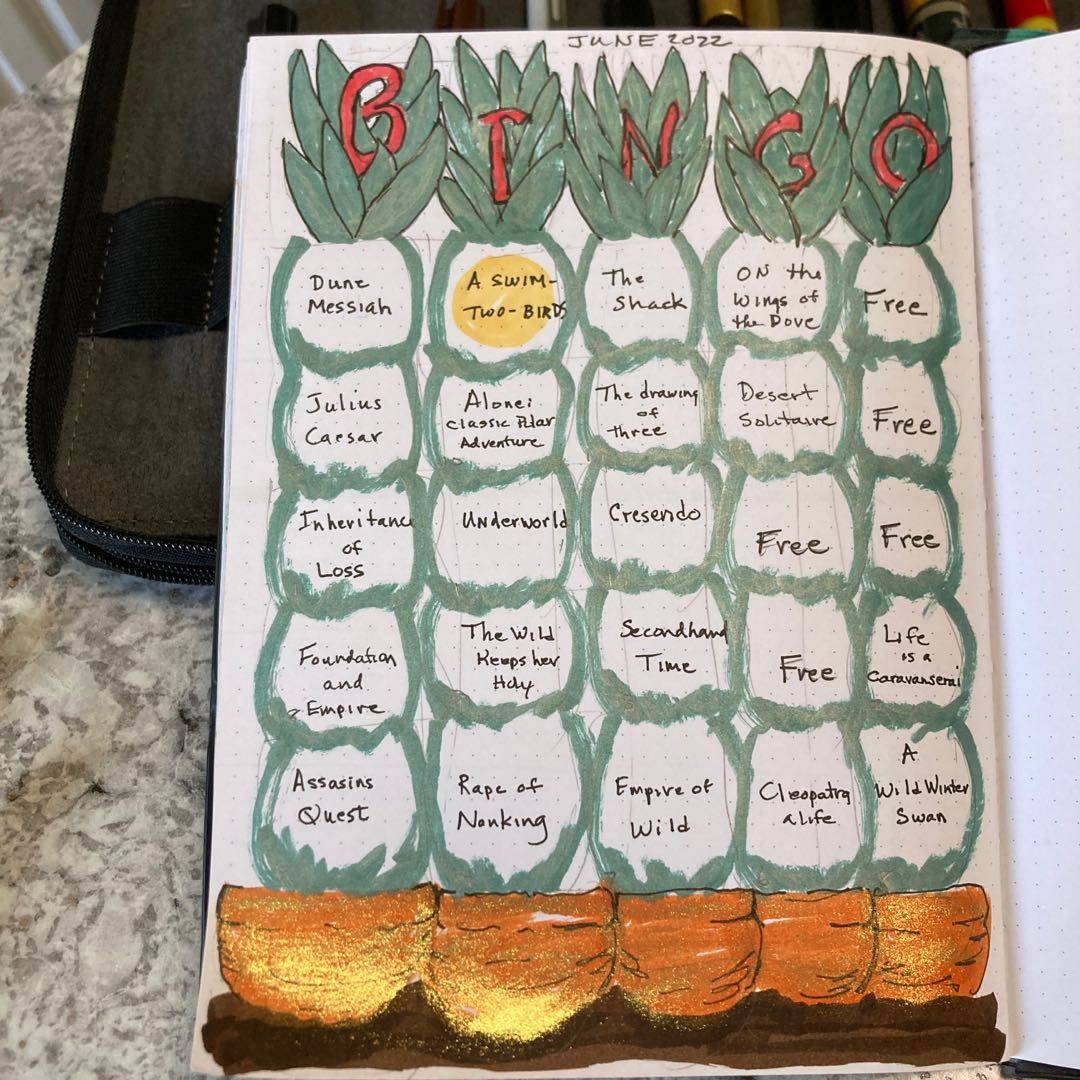 JUNE 2022
B I N G O
Dune
Messiah
A SWIM-
TWO-BIRDS
The
Shack
ON the
Wings of
the Dove
Free
Julius
Caesar
Alone:
Classic Polar
Adventure
The drawing
of
three
Desert
Solitaire
Free
Inheritance
of
Loss
Underworld
Cresendo
Free
Free
Foundation
and
Empire
The Wild
Keeps her
Holy
Secondhand
Time
Free
Life
is a
Caravanserai
Assasins
Quest
Rape of
Nanking
Empire of
Wild
Cleopatra
a life
A
Wild Winter
Swan